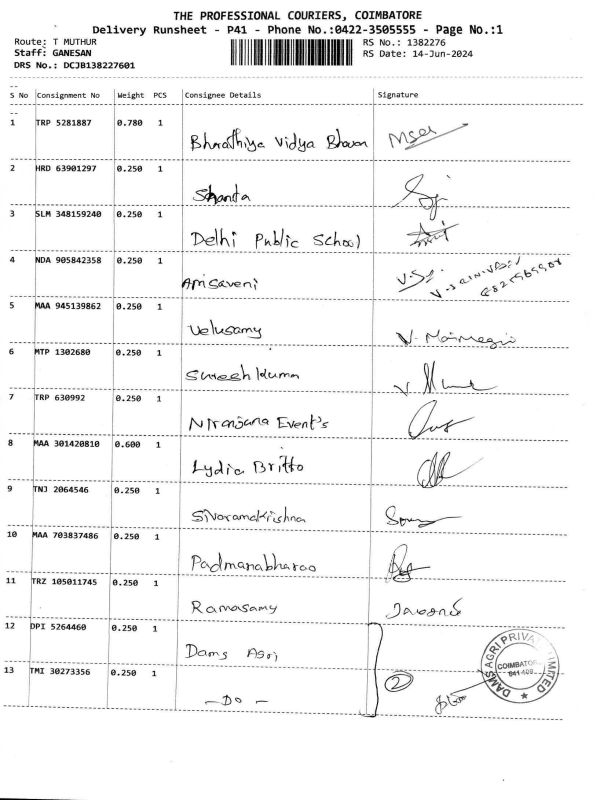 THE PROFESSIONAL COURIERS, COIMBATORE
Delivery Runsheet - P41 - Phone No.:0422-3505555 - Page No.:1
Route: T MUTHUR RS No.: 1382276
Staff: GANESAN RS Date: 14-Jun-2024
DRS No.: DCJB138227601
--
S No Consignment No Weight PCS Consignee Details Signature
--
1 TRP 5281887 0.780 1
Bharathiya Vidya Bhavan
2 HRD 63901297 0.250 1
Shanta
3 SLM 348159240 0.250 1
Delhi Public School
4 NDA 905842358 0.250 1
5 MAA 945139862 0.250 1
Velusamy
6 MTP 1302680 0.250 1
Suresh Kumar
7 TRP 630992 0.250 1
Niranjana Event's
8 MAA 301420810 0.600 1
Lydia Britto
9 TNJ 2064546 0.250 1
Sivaramakrishna
10 MAA 703837486 0.250 1
Padmanabharao
11 TRZ 105011745 0.250 1
Ramasamy
12 DPI 5264460 0.250 1
Dams Agri
13 TMI 30273356 0.250 1
- Do -
2
DAMS AGRI PRIVATE LIMITED
COIMBATORE